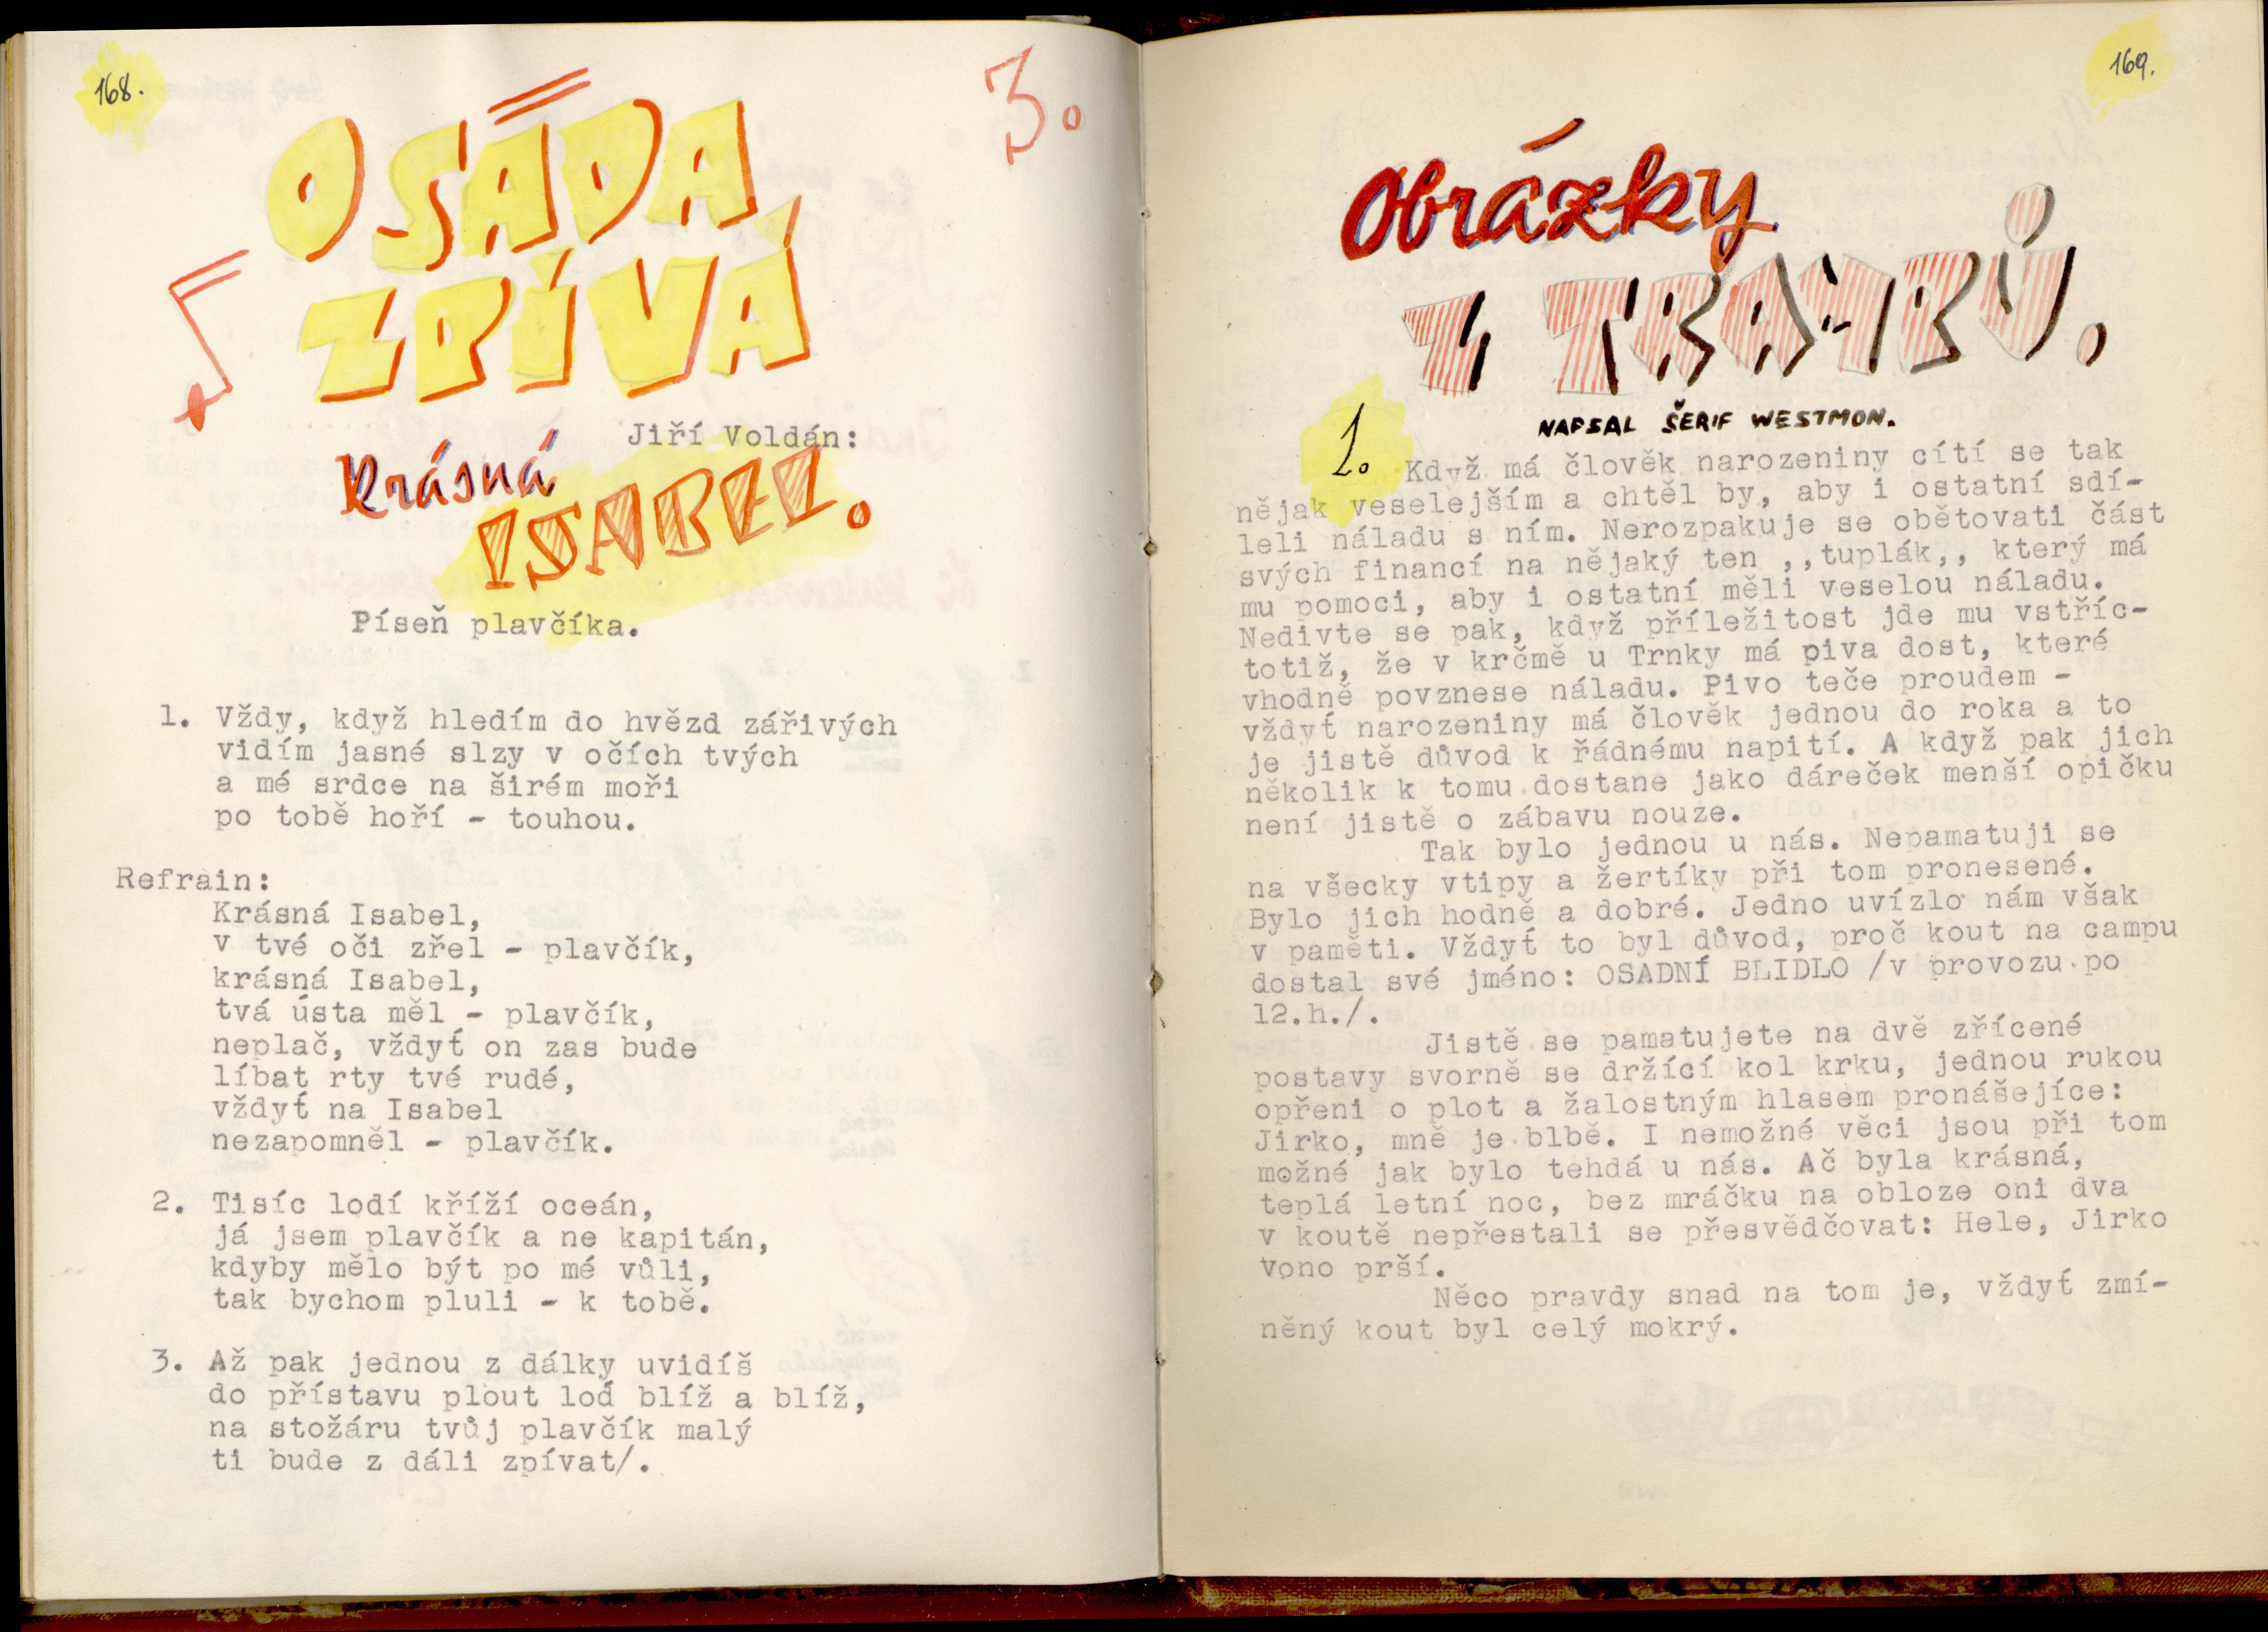 168.
3.
OSADA
ZPÍVÁ
Jiří Voldán:
Krásná
ISABEL.
Píseň plavčíka.
1. Vždy, když hledím do hvězd zářivých
vidím jasné slzy v očích tvých
a mé srdce na širém moři
po tobě hoří - touhou.
Refrain:
Krásná Isabel,
v tvé oči zřel - plavčík,
krásná Isabel,
tvá ústa měl - plavčík,
neplač, vždyť on zas bude
líbat rty tvé rudé,
vždyť na Isabel
nezapomněl - plavčík.
2. Tisíc lodí kříží oceán,
já jsem plavčík a ne kapitán,
kdyby mělo být po mé vůli,
tak bychom pluli - k tobě.
3. Až pak jednou z dálky uvidíš
do přístavu plout loď blíž a blíž,
na stožáru tvůj plavčík malý
ti bude z dáli zpívat/.
169.
Obrázky
Z TRAMPŮ.
NAPSAL ŠERIF WESTMON.
1. Když má člověk narozeniny cítí se tak
nějak veselejším a chtěl by, aby i ostatní sdí-
leli náladu s ním. Nerozpakuje se obětovati část
svých financí na nějaký ten ,,tuplák,, který má
mu pomoci, aby i ostatní měli veselou náladu.
Nedivte se pak, když příležitost jde mu vstříc-
totiž, že v krčmě u Trnky má piva dost, které
vhodně povznese náladu. Pivo teče proudem -
vždyť narozeniny má člověk jednou do roka a to
je jistě důvod k řádnému napití. A když pak jich
několik k tomu dostane jako dáreček menší opičku
není jistě o zábavu nouze.
Tak bylo jednou u nás. Nepamatuji se
na všecky vtipy a žertíky při tom pronesené.
Bylo jich hodně a dobré. Jedno uvízlo nám však
v paměti. Vždyť to byl důvod, proč kout na campu
dostal své jméno: OSADNÍ BLIDLO /v provozu po
12.h./.
Jistě se pamatujete na dvě zřícené
postavy svorně se držící kol krku, jednou rukou
opřeni o plot a žalostným hlasem pronášejíce:
Jirko, mně je blbě. I nemožné věci jsou při tom
možné jak bylo tehdá u nás. Ač byla krásná,
teplá letní noc, bez mráčku na obloze oni dva
v koutě nepřestali se přesvědčovat: Hele, Jirko
vono prší.
Něco pravdy snad na tom je, vždyť zmí-
něný kout byl celý mokrý.